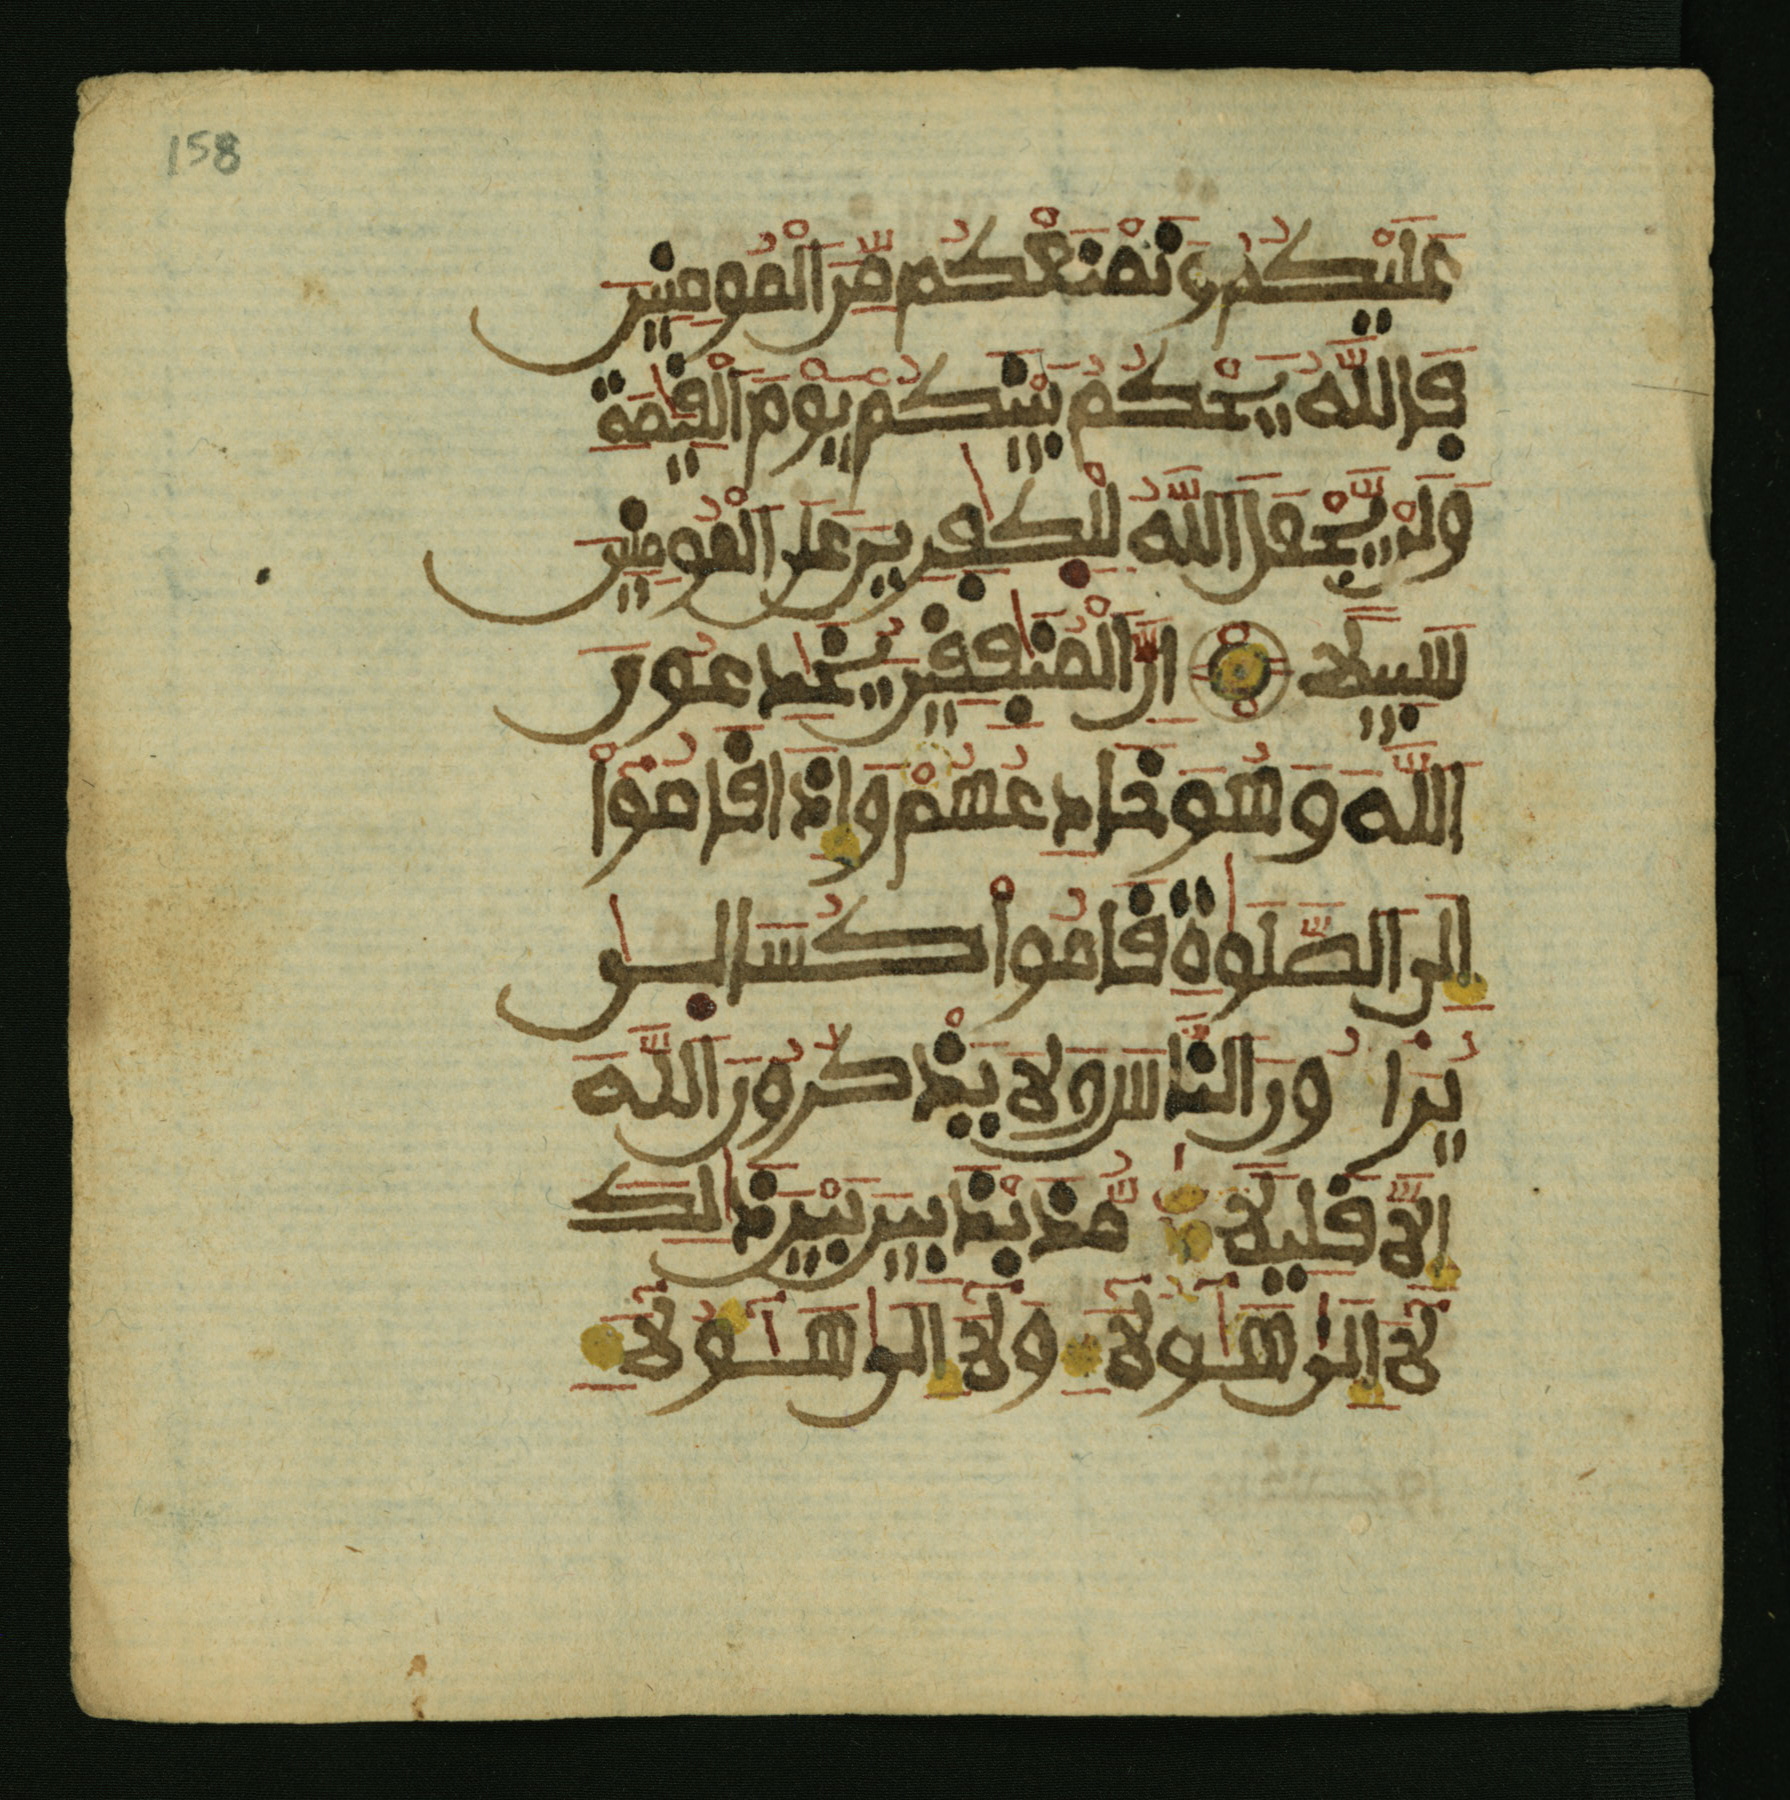 158
عَلَيْكُمْ وَنَمْنَعْكُم مِّنَ ٱلْمُومِنِينَ
فَاللَّهُ يَحْكُمُ بَيْنَكُمْ يَوْمَ ٱلْقِيَٰمَةِ
وَلَنْ يَّجْعَلَ ٱللَّهُ لِلْكَٰفِرِينَ عَلَى ٱلْمُومِنِينَ
سَبِيلًا ۝ اِنَّ ٱلْمُنَٰفِقِينَ يُخَٰدِعُونَ
ٱللَّهَ وَهُوَ خَٰدِعُهُمْ وَإِذَا قَامُوٓاْ
إِلَى ٱلصَّلَوٰةِ قَامُواْ كُسَالَىٰ
يُرَآءُونَ ٱلنَّاسَ وَلَا يَذْكُرُونَ ٱللَّهَ
إِلَّا قَلِيلًا مُّذَبْذَبِينَ بَيْنَ ذَٰلِكَ
لَآ إِلَىٰ هَٰٓؤُلَآءِ وَلَآ إِلَىٰ هَٰٓؤُلَآءِ